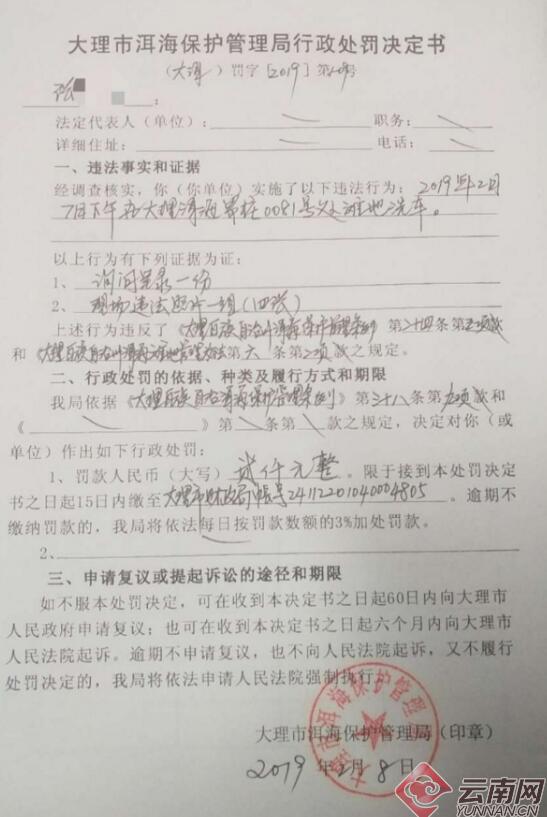 大理市洱海保护管理局行政处罚决定书
(大洱)罚字[2019]第 号
张 :
法定代表人(单位): 职务:
详细住址: 电话:
一、违法事实和证据
经调查核实,你(你单位)实施了以下违法行为:2019年2月
7日下午在大理洱海界桩0081号处滩地洗车。
以上行为有下列证据为证:
1、询问笔录一份
2、现场违法照片一组(四张)
上述行为违反了《大理白族自治州洱海保护管理条例》第二十四条第 项款
和《大理白族自治州洱海滩地管理办法》第六条第二项款之规定。
二、行政处罚的依据、种类及履行方式和期限
我局依据《大理白族自治州洱海保护管理条例》第三十八条第九项款和
《 》第 条第 款之规定,决定对你(或
单位)作出如下行政处罚:
1、罚款人民币(大写)贰仟元整。限于接到本处罚决定
书之日起15日内缴至大理市财政局帐号24112201040004805。逾期不
缴纳罚款的,我局将依法每日按罚款数额的3%加处罚款。
2、
三、申请复议或提起诉讼的途径和期限
如不服本处罚决定,可在收到本决定书之日起60日内向大理市
人民政府申请复议;也可在收到本决定书之日起六个月内向大理市
人民法院起诉。逾期不申请复议,也不向人民法院起诉,又不履行
处罚决定的,我局将依法申请人民法院强制执行。
大理市洱海保护管理局
大理市洱海保护管理局(印章)
2019年2月8日
云南网
YUNNAN.CN